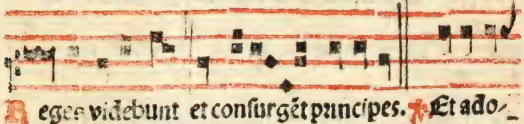 Reges videbunt et conſurgẽt principes. ℟ Et ado⸗